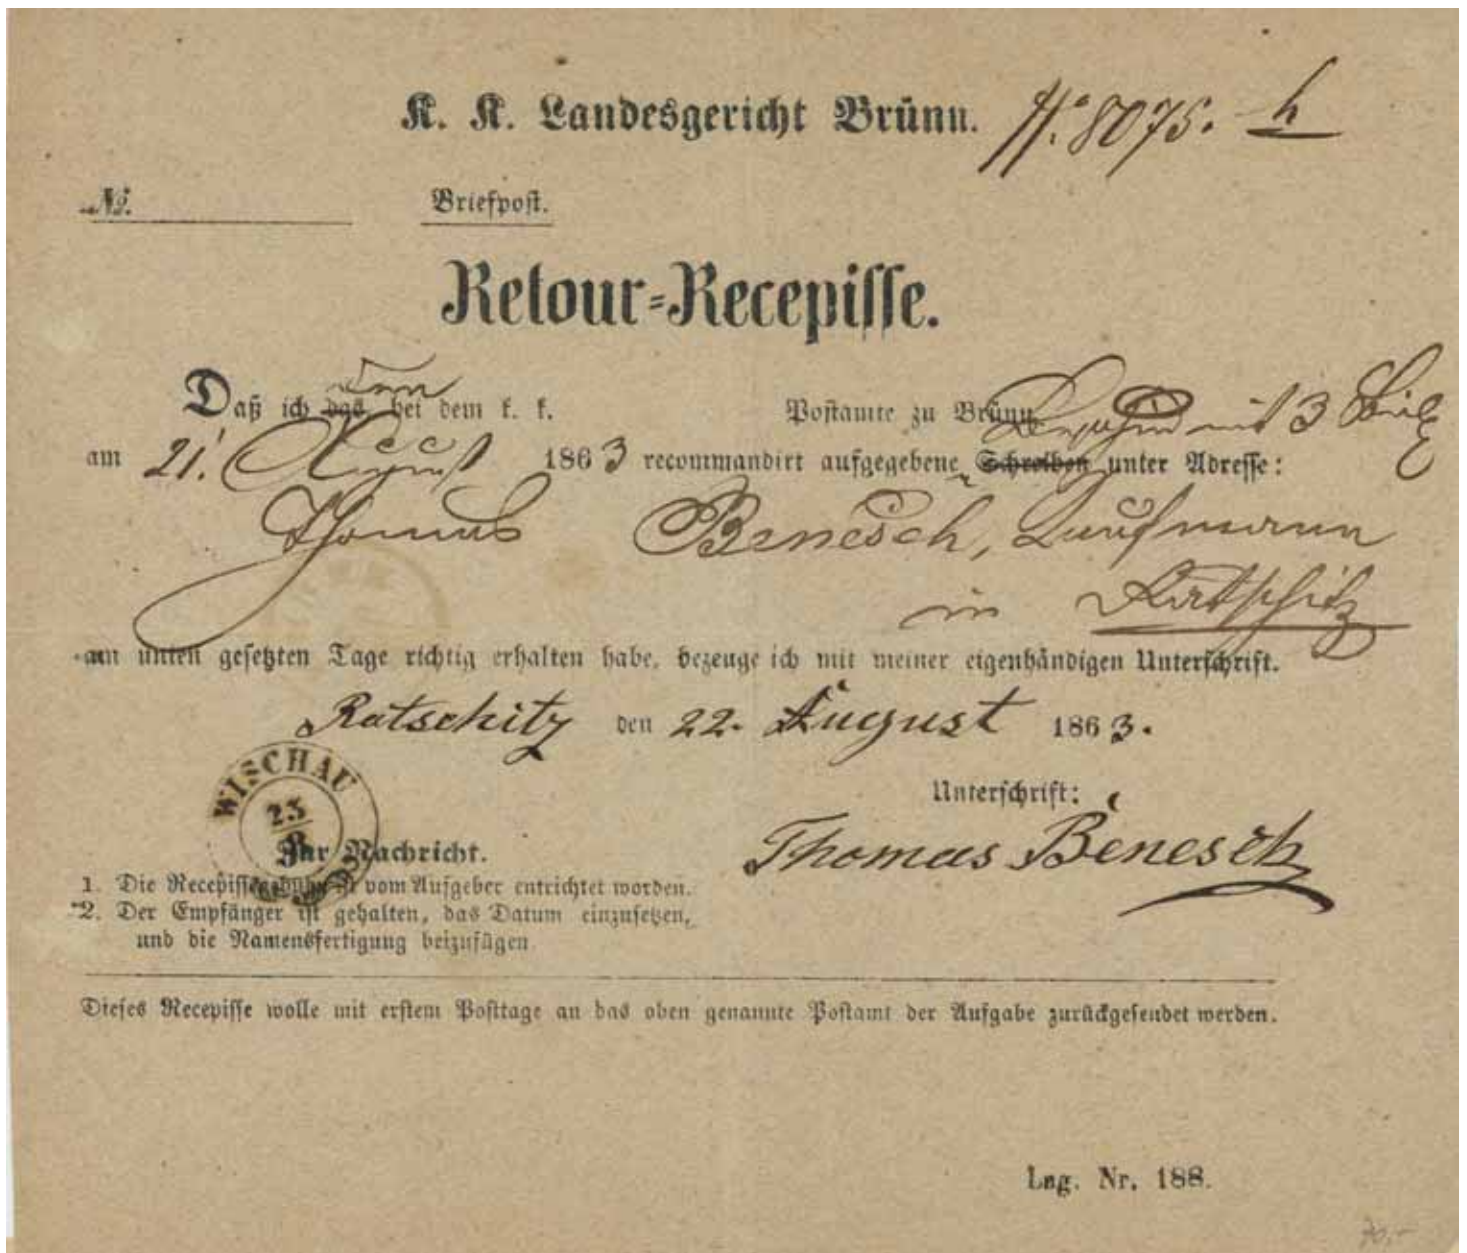 K. K. Landesgericht Brünn. N: 8075. h
No. Briefpost.
Retour-Recepisse.
den
Daß ich das bei dem k. k. Postamte zu Brünn mit 3
am 21. August 1863 recommandirt aufgegebene Schreiben unter Adresse:
Thomas Benesch, Kaufmann
in Ratschitz
am unten gesetzten Tage richtig erhalten habe, bezeuge ich mit meiner eigenhändigen Unterschrift.
Ratschitz den 22. August 1863.
WISCHAU
23
8
Unterschrift:
Thomas Benesch
Zur Nachricht.
1. Die Recepissegebühr ist vom Aufgeber entrichtet worden.
2. Der Empfänger ist gehalten, das Datum einzusetzen,
und die Namensfertigung beizufügen.
Dieses Recepisse wolle mit erstem Posttage an das oben genannte Postamt der Aufgabe zurückgesendet werden.
Lag. Nr. 188.
70,-